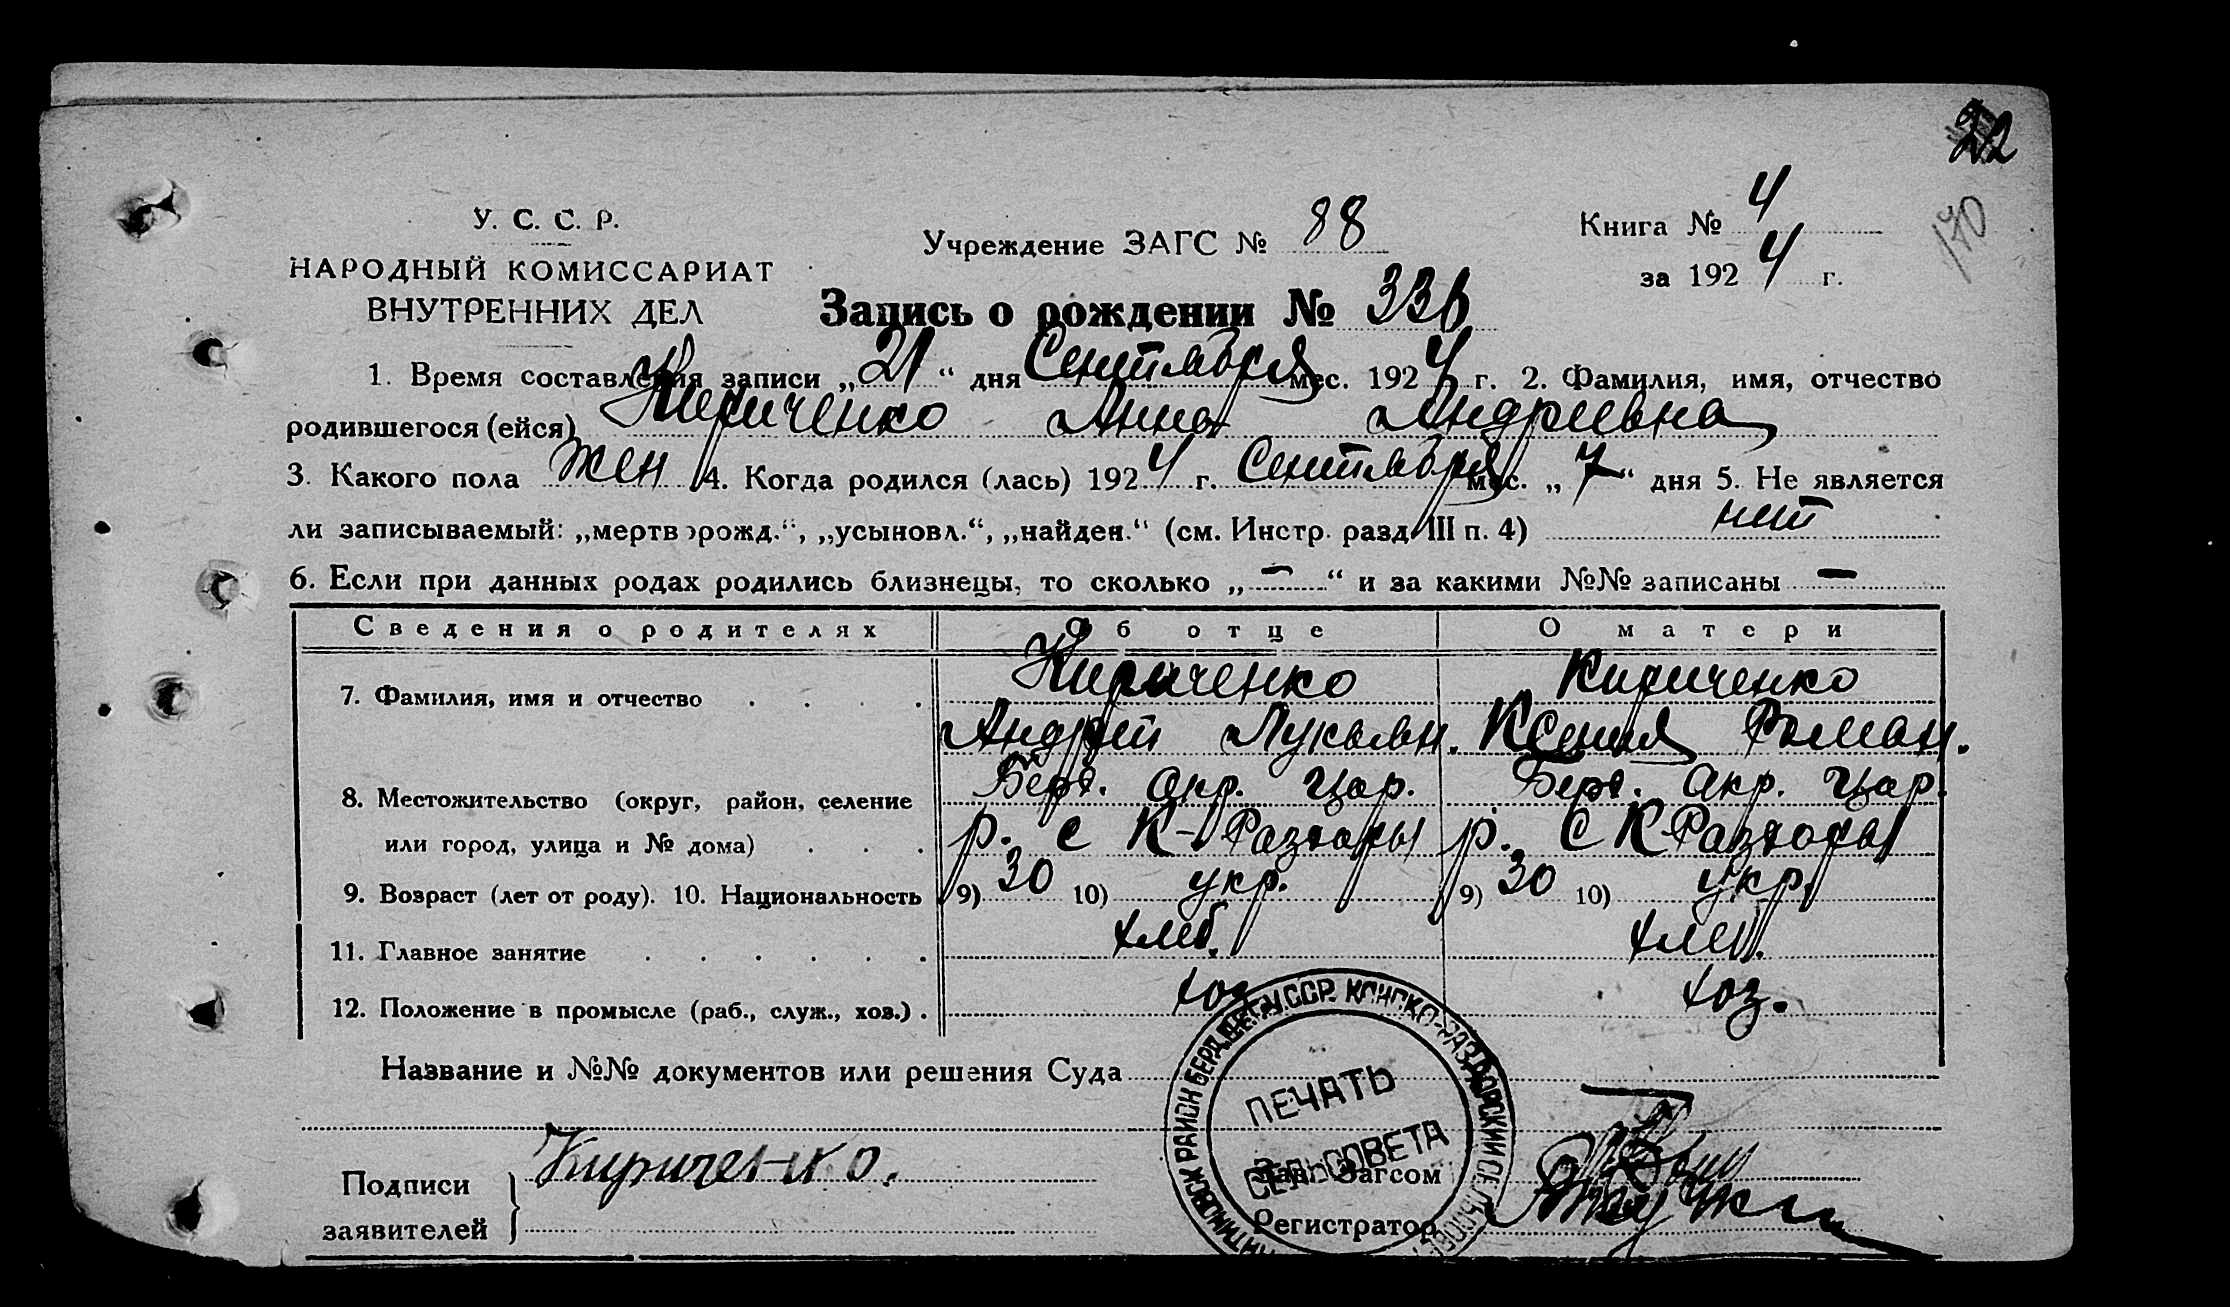 22
170
У. С. С. Р.
НАРОДНЫЙ КОМИССАРИАТ
ВНУТРЕННИХ ДЕЛ
Учреждение ЗАГС № 88
Книга № 4
за 1924 г.
Запись о рождении № 336
1. Время составления записи „21“ дня Сентября мес. 1924 г. 2. Фамилия, имя, отчество
родившегося (ейся) Кириченко Анна Андреевна
3. Какого пола жен 4. Когда родился (лась) 1924 г. Сентября мес. „7“ дня 5. Не является
ли записываемый: „мертворожд.“, „усыновл.“, „найден.“ (см. Инстр. разд. III п. 4) нет
6. Если при данных родах родились близнецы, то сколько „—“ и за какими №№ записаны —
Сведения о родителях Об отце О матери
7. Фамилия, имя и отчество . . . . Кириченко Кириченко
Андрей Лукьян. Ксения Роман.
8. Местожительство (округ, район, селение Берд. окр. Цар. Берд. окр. Цар.
или город, улица и № дома) . . . р. с К-Раздоры р. с К-Раздоры
9. Возраст (лет от роду). 10. Национальность 9) 30 10) укр. 9) 30 10) укр.
11. Главное занятие . . . . . . хлеб. хлеб.
12. Положение в промысле (раб., служ., хоз.) . хоз. хоз.
Название и №№ документов или решения Суда
Подписи
заявителей
Кириченко.
Зав. Загсом
Регистратор
ПЕЧАТЬ
СЕЛЬСОВЕТА
У.С.С.Р. КОНСКО-РАЗДОРСКИЙ
РАЙОН БЕРД.